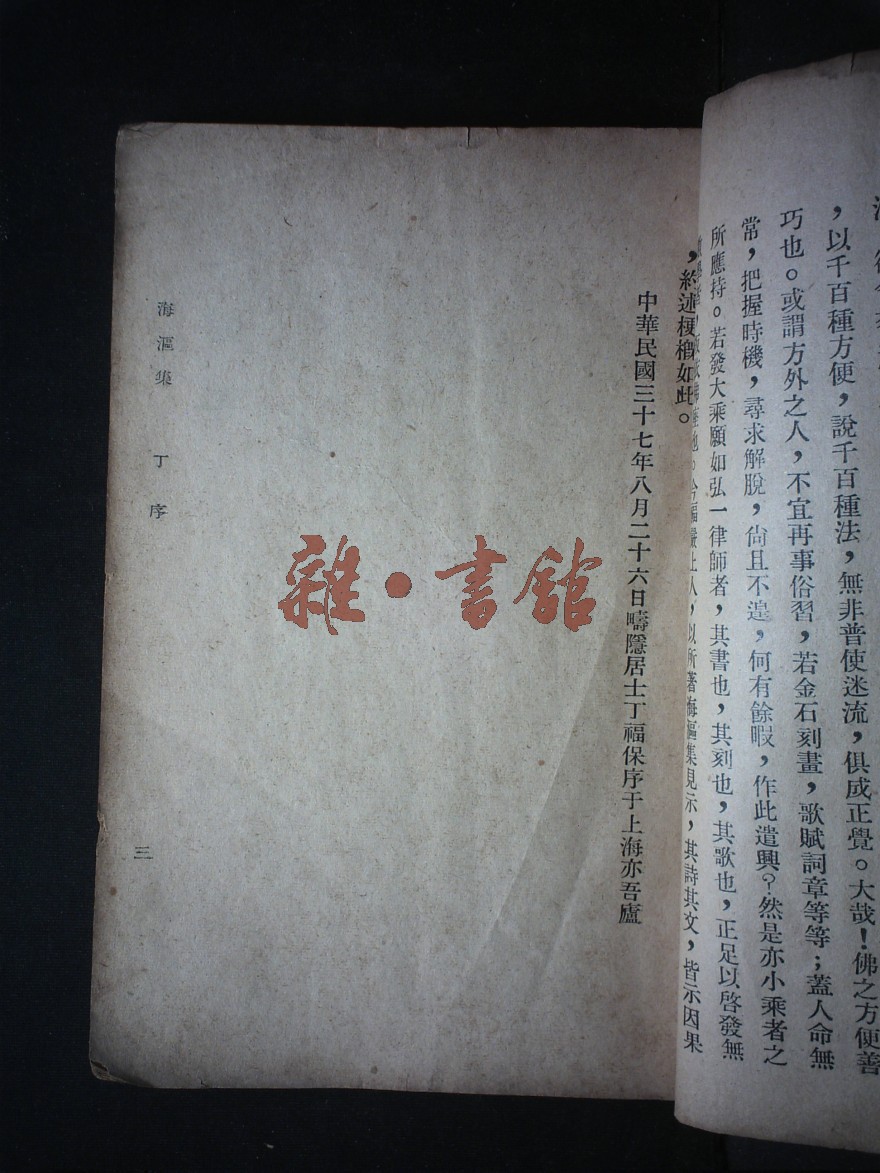 ，以千百種方便，說千百種法，無非普使迷流，俱成正覺。大哉！佛之方便善
巧也。或謂方外之人，不宜再事俗習，若金石刻畫，歌賦詞章等等；蓋人命無
常，把握時機，尋求解脫，尙且不遑，何有餘暇，作此遣興？然是亦小乘者之
所應持。若發大乘願如弘一律師者，其書也，其刻也，其歌也，正足以啓發無
上人，以所著海漚集見示，其詩其文，皆示因果
，約述梗槪如此。
中華民國三十七年八月二十六日疇隱居士丁福保序于上海亦吾廬
海漚集　丁序
三
雜·書館